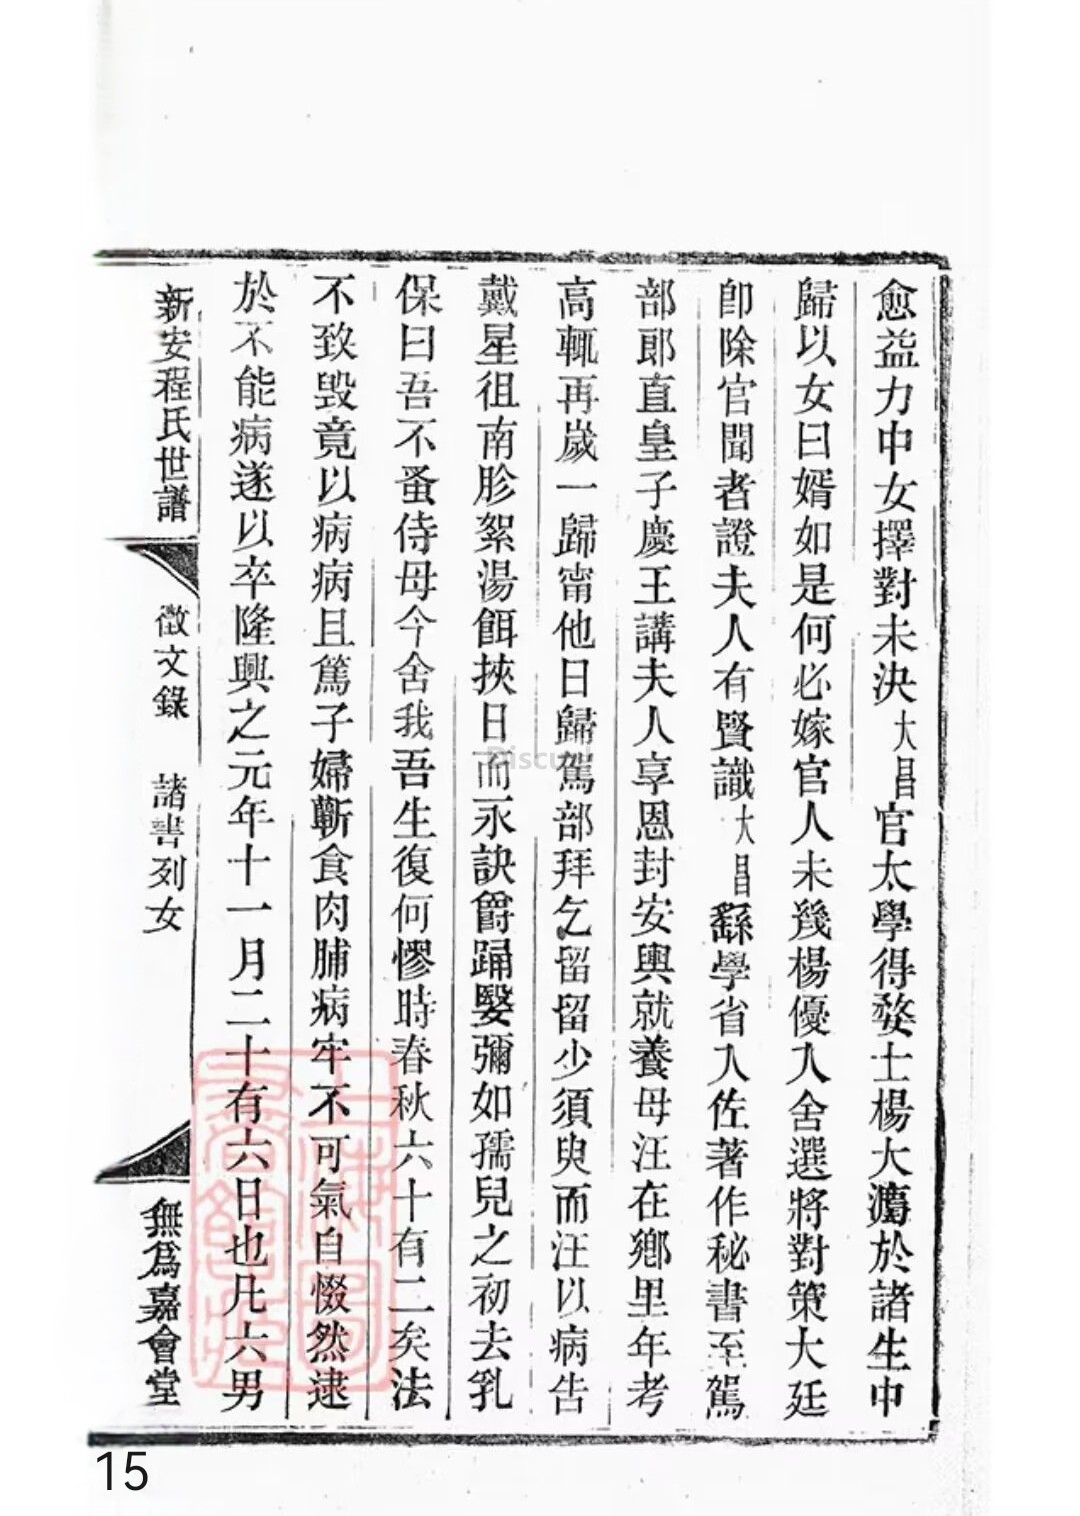 愈益力中女擇對未決大昌官太學得婺士楊大灋於諸生中
歸以女曰婿如是何必嫁官人未幾楊優入舍選將對策大廷
卽除官聞者證夫人有賢識大昌繇學省入佐著作秘書至駕
部郎直皇子慶王講夫人享恩封安輿就養母汪在鄉里年考
高輒再歲一歸甯他日歸駕部拜乞留留少須臾而汪以病告
戴星徂南胗絮湯餌挾日而永訣爵踊嫛彌如孺兒之初去乳
保曰吾不蚤侍母今舍我吾生復何憀時春秋六十有二矣法
不致毁竟以病病且篤子婦蘄食肉脯病牢不可氣自惙然逮
於不能病遂以卒隆興之元年十一月二十有六日也凡六男
新安程氏世譜 徵文錄 諸書列女 無爲嘉會堂
上海圖書館藏
15